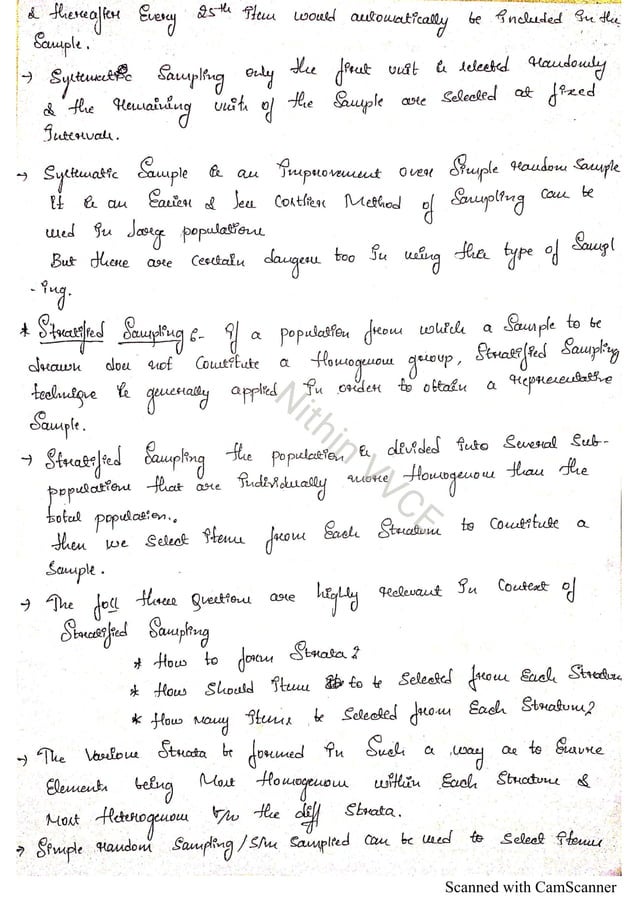 & thereafter Every 25th Item would automatically be Included In the
Sample.
→ Systematic Sampling only the first unit is selected Randomly
& the Remaining units of the Sample are Selected at fixed
Intervals.
→ Systematic Sample is an Improvement over Simple Random Sample
It is an Easier & less Costlier Method of Sampling can be
used In large populations
But there are certain dangers too In using this type of Sampl
-ing.
* Stratified Sampling :- If a population from which a Sample to be
drawn does not Constitute a Homogenous group, Stratified Sampling
technique is generally applied In order to obtain a Representative
Sample.
→ Stratified Sampling the population is divided Into Several Sub-
populations that are Individually more Homogenous than the
total population..
then we select Items from Each Stratum to Constitute a
Sample.
→ The foll three Questions are highly relevant In Context of
Stratified Sampling
* How to form Strata?
* How Should Items to be Selected from Each Stratum
* How Many Items be Selected from Each Stratum?
→ The Various Strata be formed In Such a way as to Ensure
Elements being Most Homogenous within Each Stratum &
Most Heterogenous b/w the diff Strata.
→ Simple Random Sampling / S/m Sampled can be used to Select Items
Nithin VVCE
Scanned with CamScanner